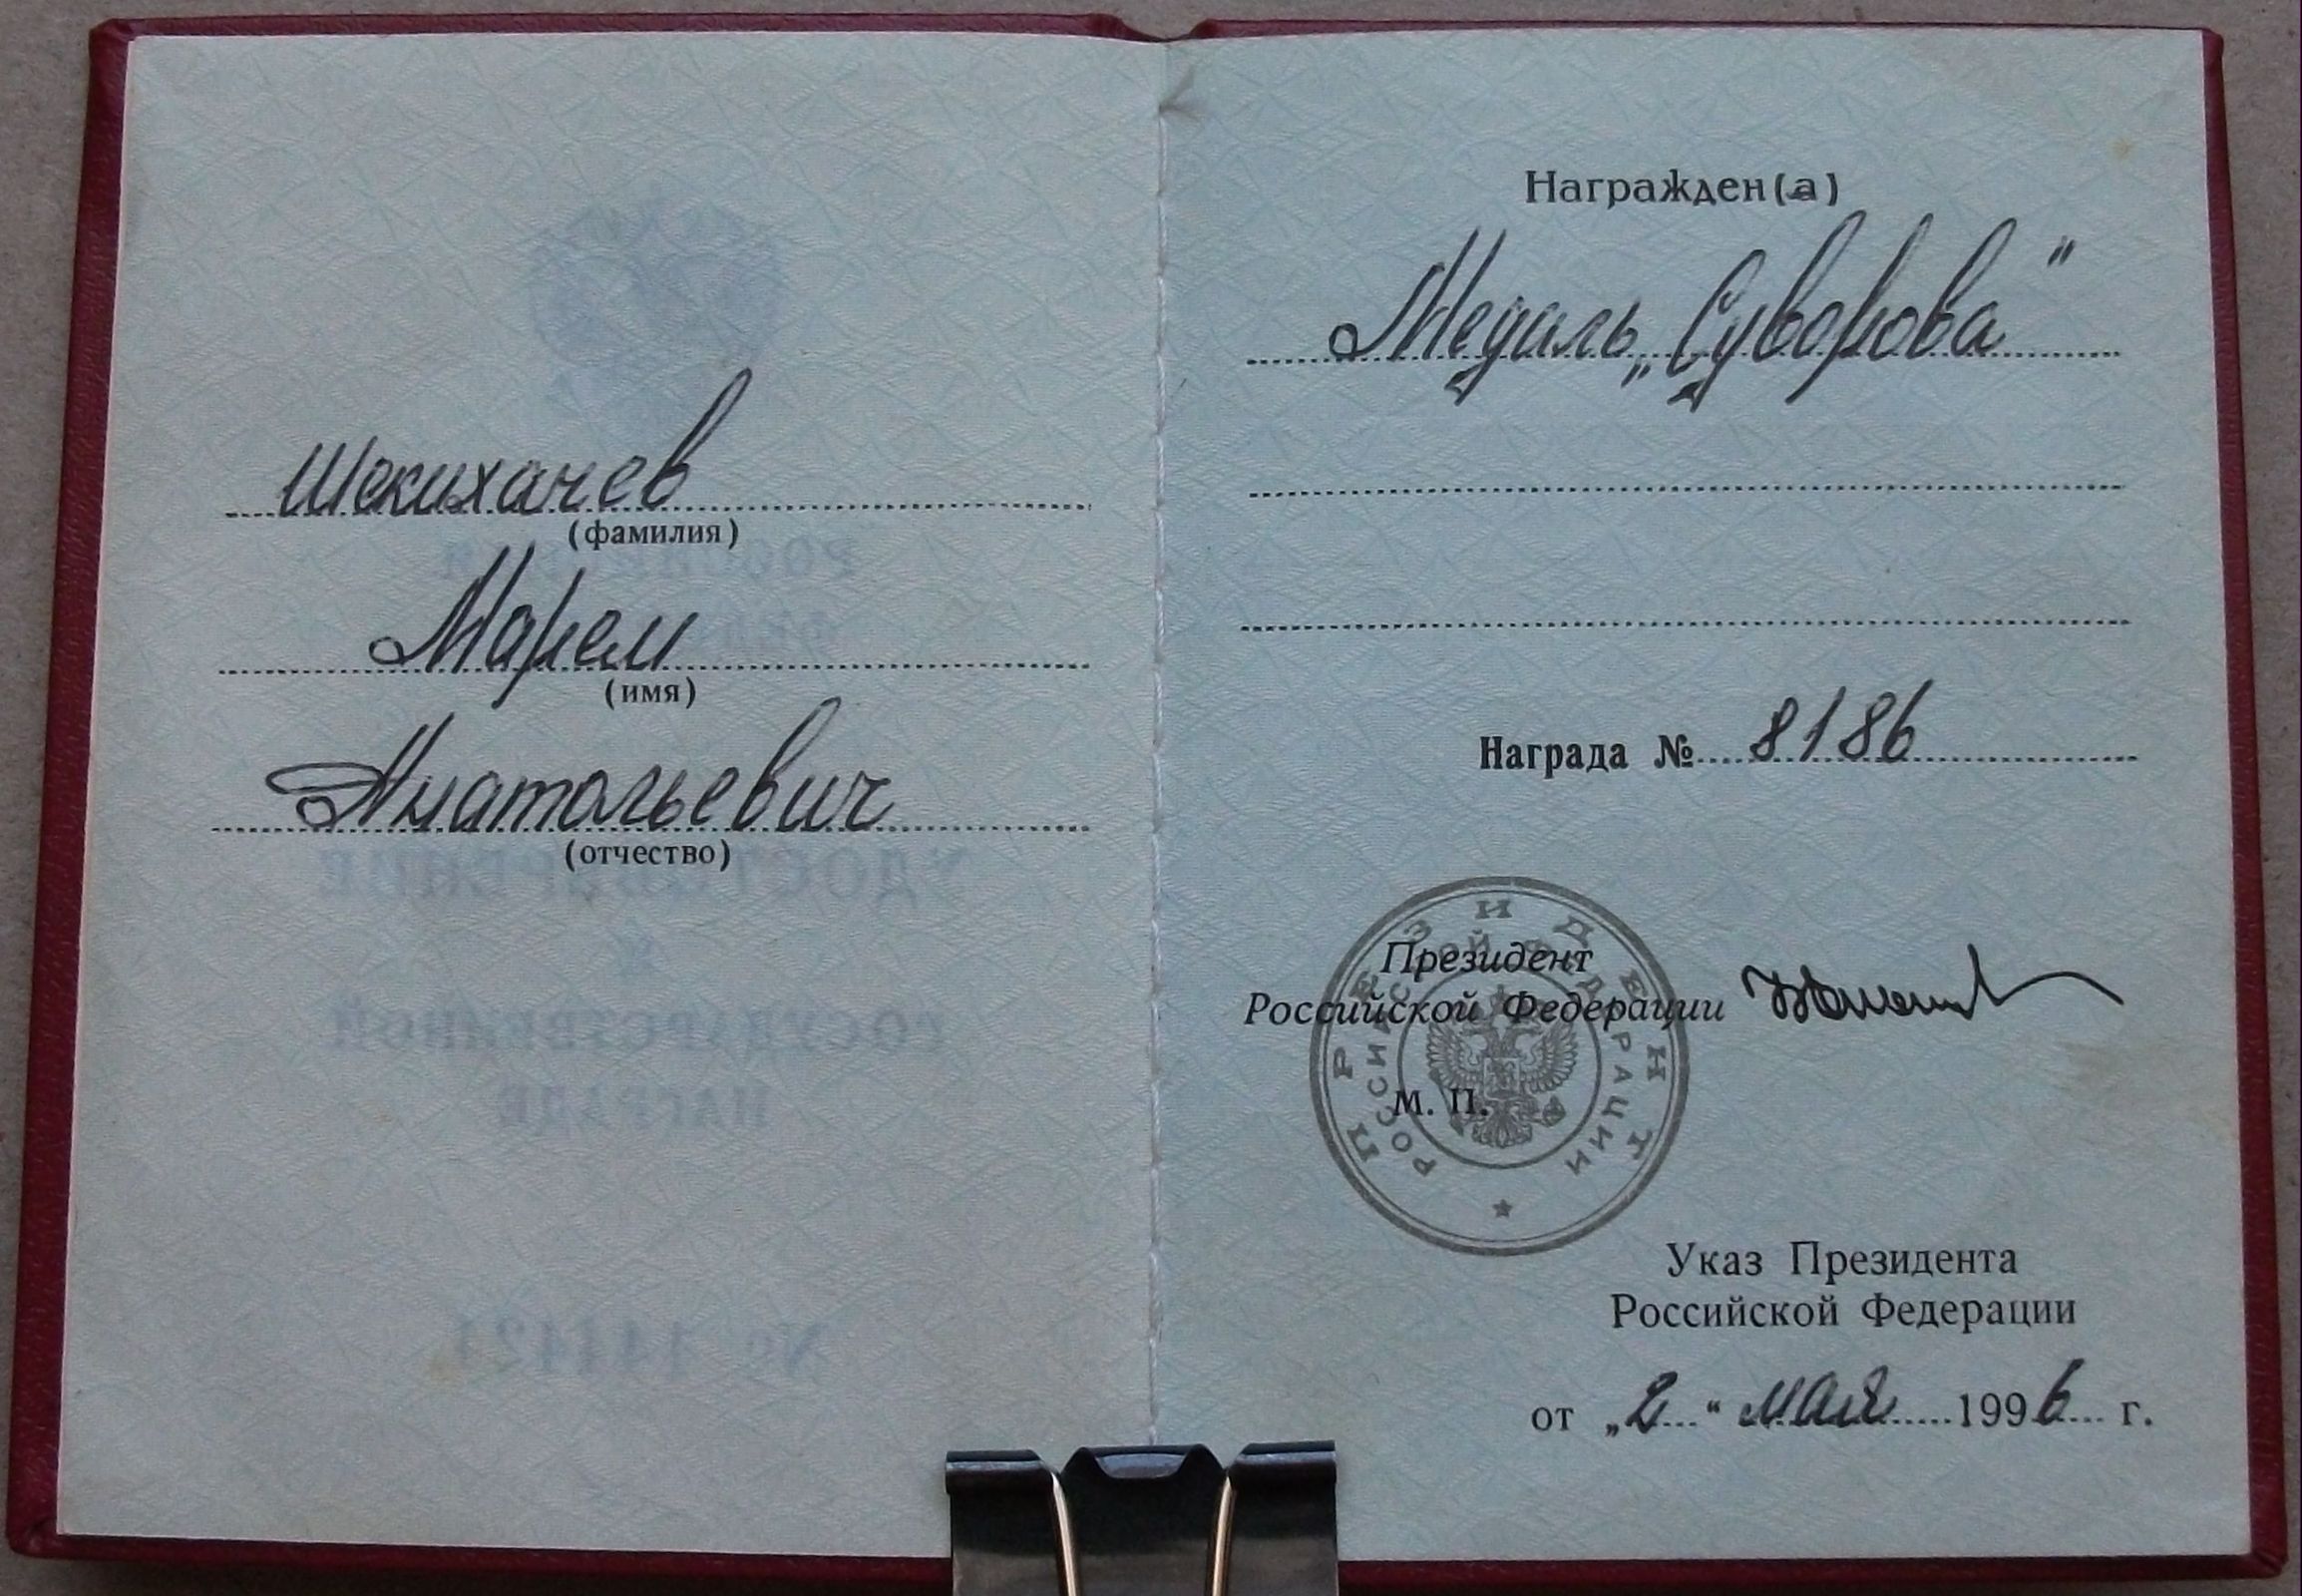 Шекихачев
(фамилия)
Марем
(имя)
Анатольевич
(отчество)
№ 444421
Награжден(а)
Медаль „Суворова"
Награда № 8186
ПРЕЗИДЕНТ
РОССИЙСКОЙ ФЕДЕРАЦИИ
Президент
Российской Федерации
М. П.
Указ Президента
Российской Федерации
от „2" мая 1996 г.